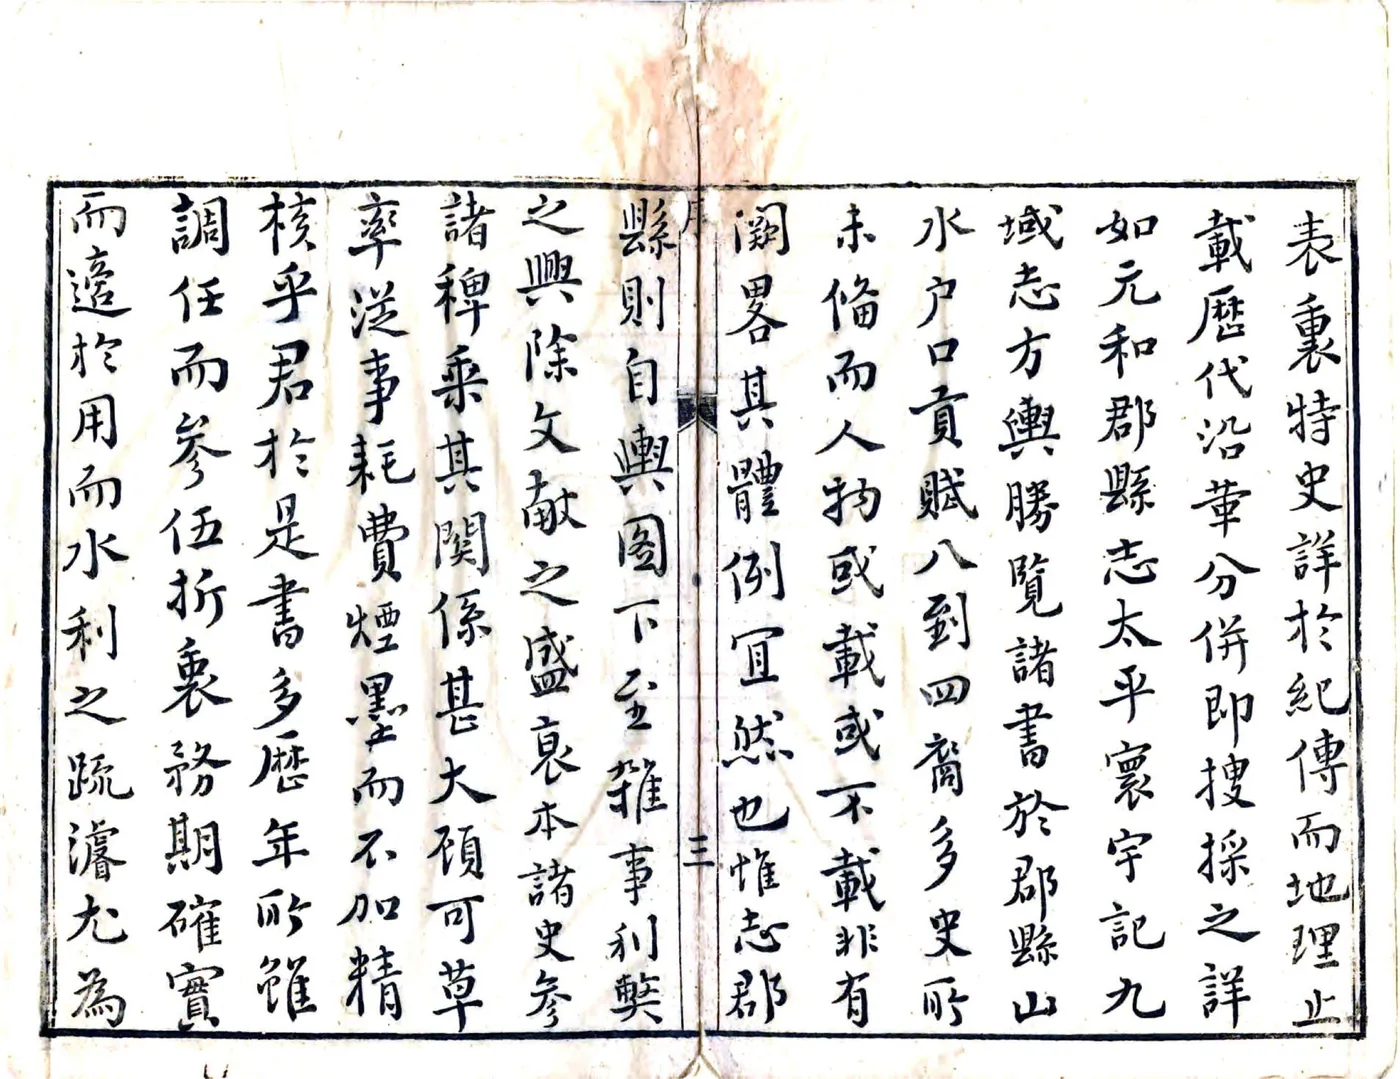 表裏特史詳於紀傳而地理止
載歷代沿革分併即搜採之詳
如元和郡縣志太平寰宇記九
域志方輿勝覽諸書於郡縣山
水户口貢賦八到四裔多史所
未俻而人物或載或不載非有
闕畧其體例宜然也惟志郡
序
三
縣則自輿图下至雜事利弊
之興除文献之盛衰本諸史参
諸稗乘其関係甚大顧可草
率從事耗費煙墨而不加精
核乎君於是書多歷年所雖
調任而参伍折衷務期確實
而適於用而水利之疏濬尤為